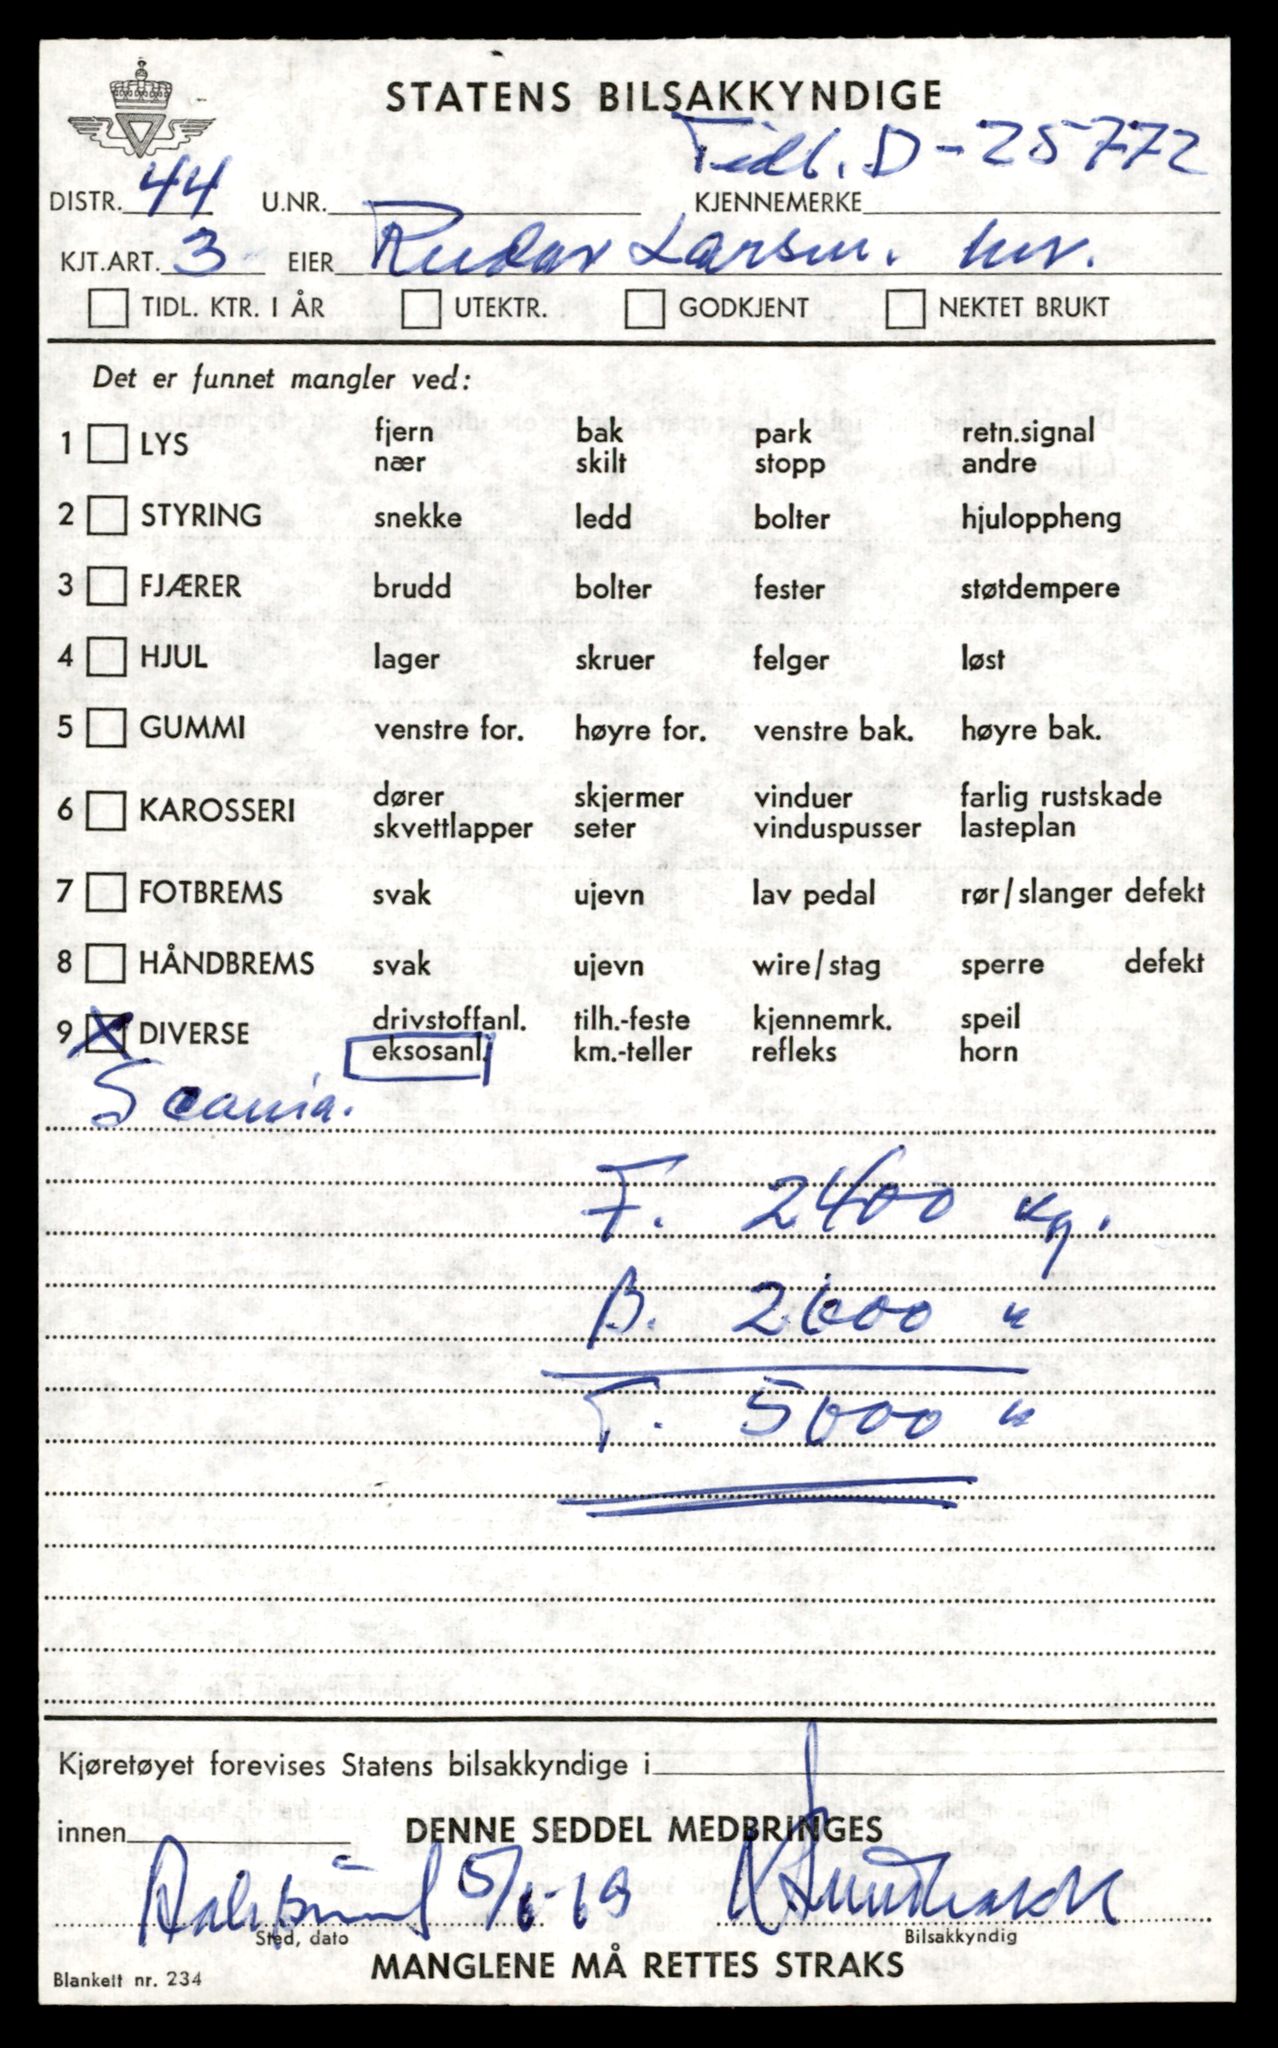 STATENS BILSAKKYNDIGE
Tidl. D-25772
DISTR. 44 U.NR. KJENNEMERKE
KJT.ART. 3 EIER Rudar Larsen.
TIDL. KTR. I ÅR UTEKTR. GODKJENT NEKTET BRUKT
Det er funnet mangler ved:
1 LYS fjern bak park retn.signal
nær skilt stopp andre
2 STYRING snekke ledd bolter hjuloppheng
3 FJÆRER brudd bolter fester støtdempere
4 HJUL lager skruer felger løst
5 GUMMI venstre for. høyre for. venstre bak. høyre bak.
6 KAROSSERI dører skjermer vinduer farlig rustskade
skvettlapper seter vinduspusser lasteplan
7 FOTBREMS svak ujevn lav pedal rør/slanger defekt
8 HÅNDBREMS svak ujevn wire/stag sperre defekt
9 X DIVERSE drivstoffanl. tilh.-feste kjennemrk. speil
eksosanl. km.-teller refleks horn
Scania.
F. 2400 kg.
B. 2600 "
T. 5000 "
Kjøretøyet forevises Statens bilsakkyndige i
innen DENNE SEDDEL MEDBRINGES
5/6-69
Sted, dato Bilsakkyndig
MANGLENE MÅ RETTES STRAKS
Blankett nr. 234